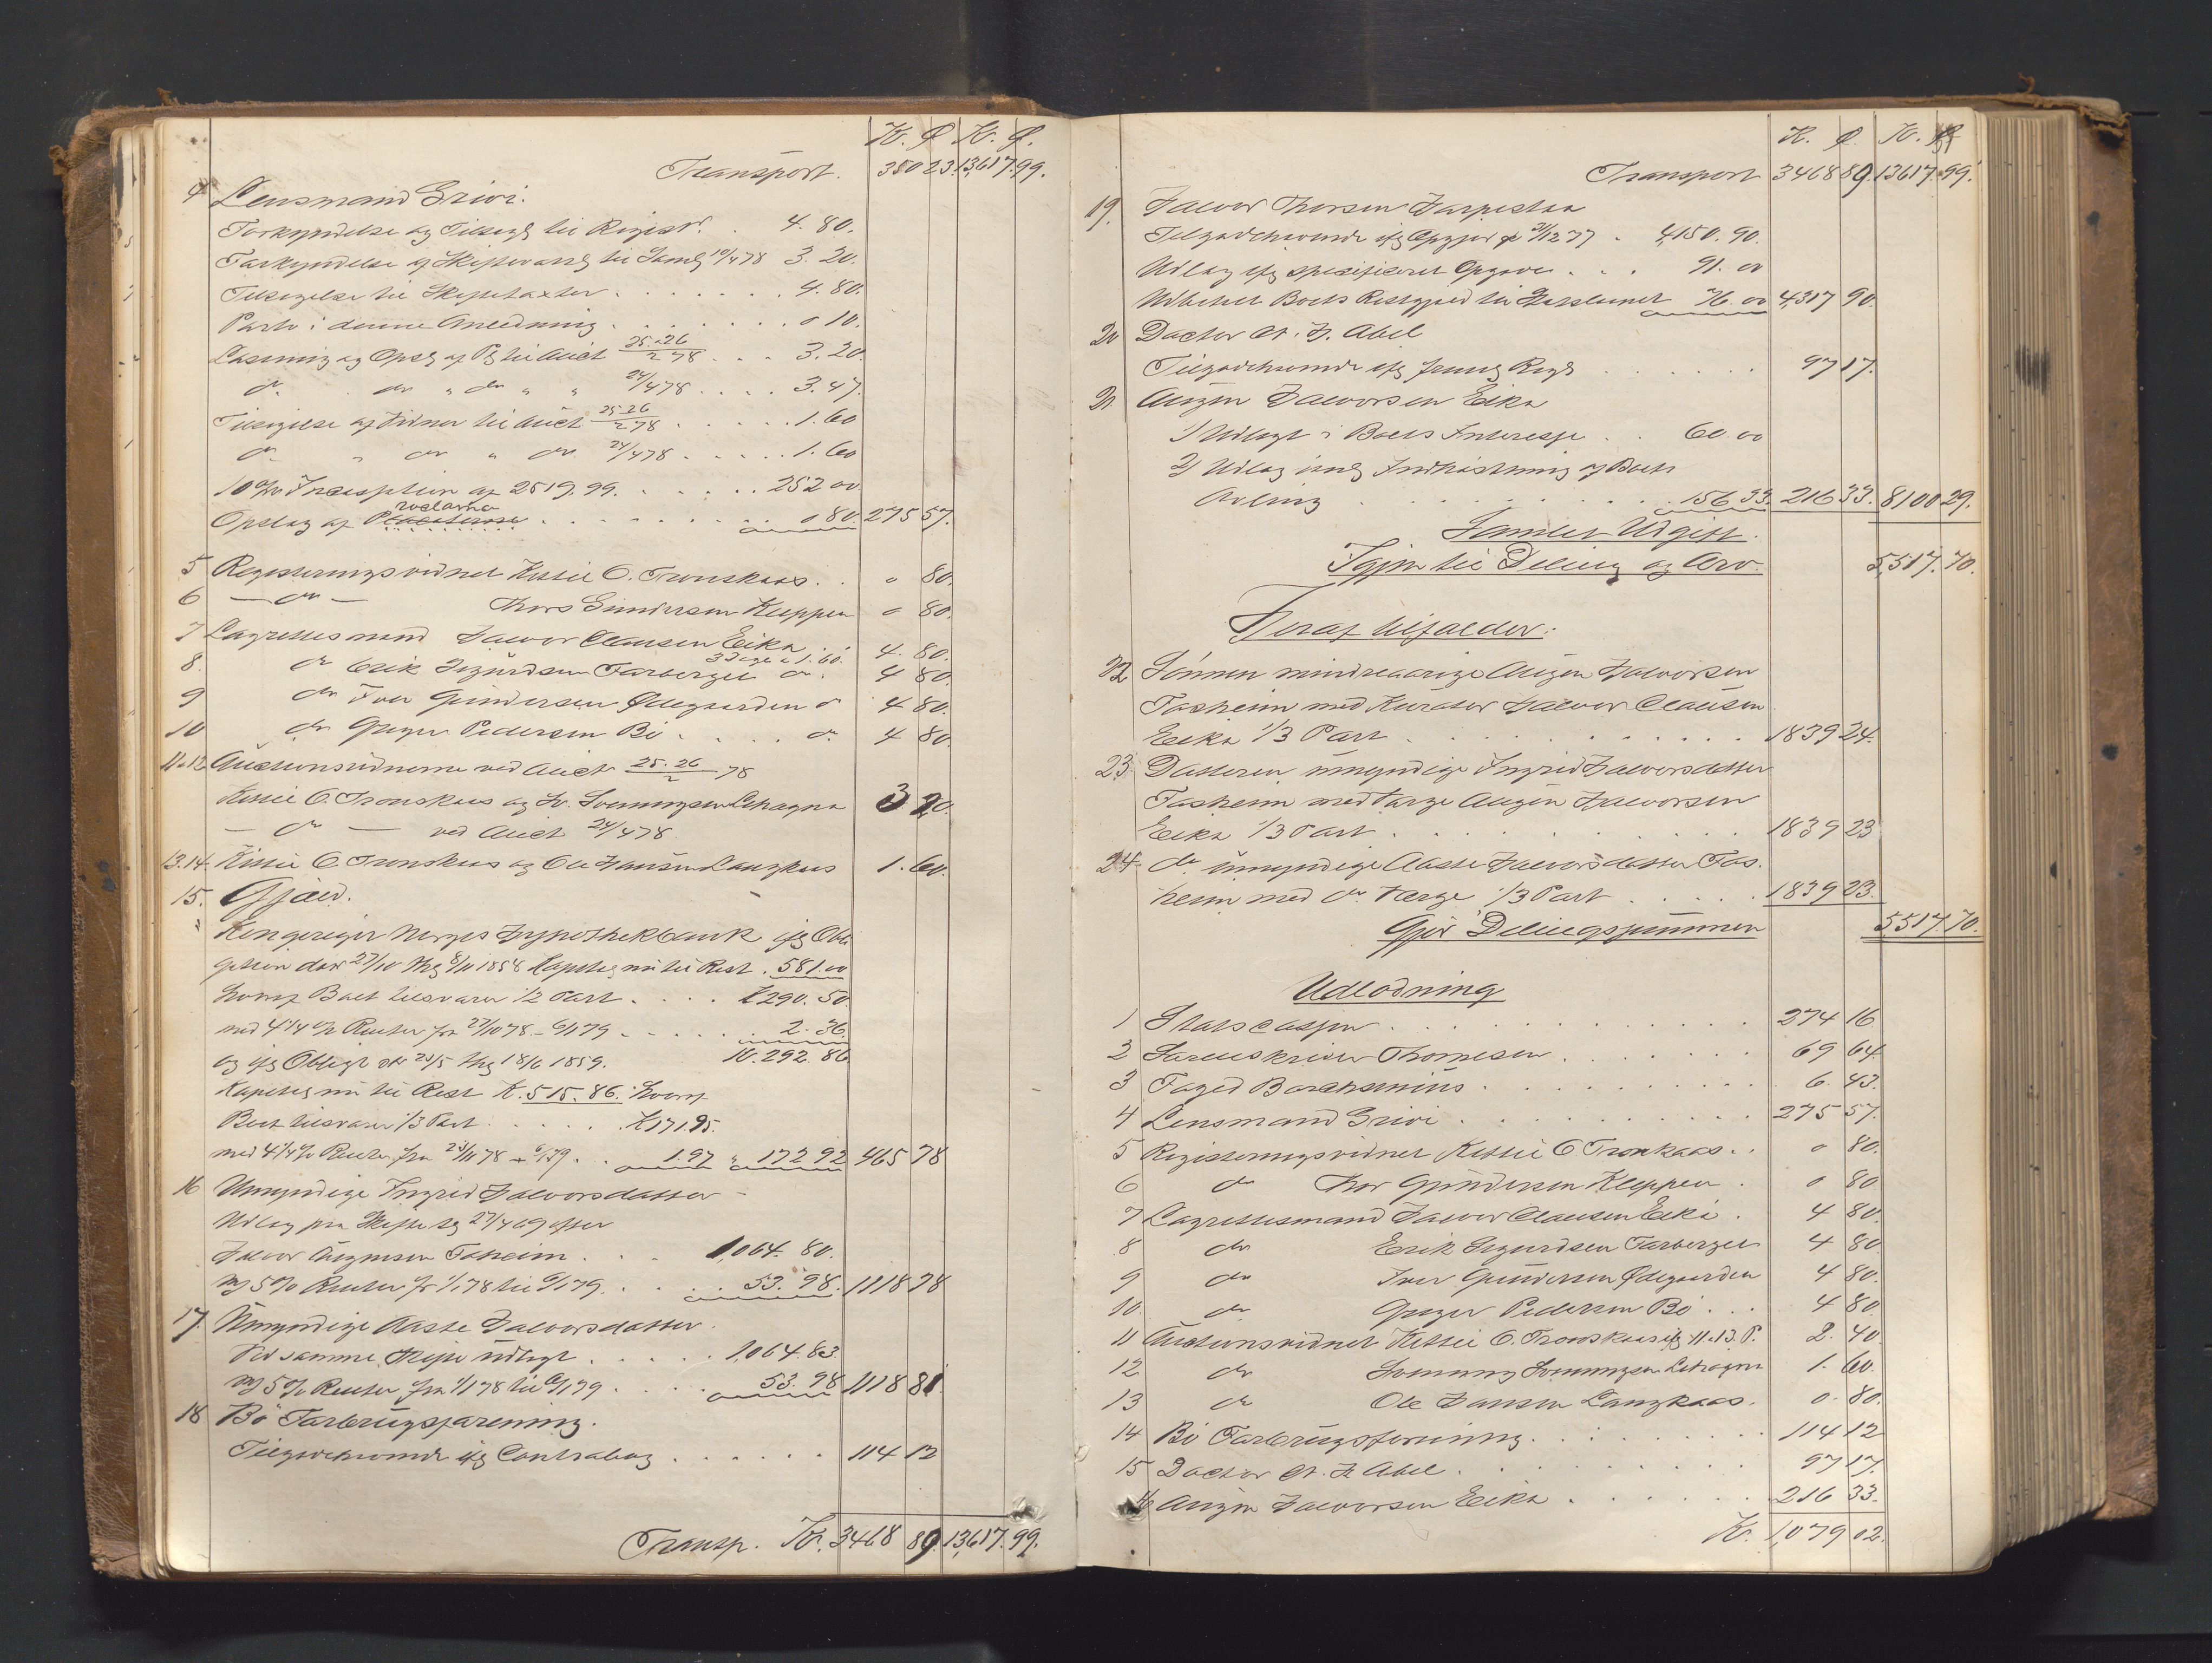 K. Ø. K. Ø.
Transport. 350 23. 13,617. 99.
4 Lensmand Grivi.
Forkyndelse og Tilsagb til Registr. . 4. 80.
Forkyndelse af Skiftevarsl til Samlg 10/4 78 3. 20.
Tilsigelse til Skiftetaxter . . . . . . 4. 80.
Porto i denne Anledning . . . . . . 0 10.
Læsning og Opsl af Pl til Auct 25. 26/2 78 . . . 3. 20.
do. do " do " " 24/4 78 . . . . 3. 47.
Tilsigelse af Vidner til Auct 25 26/2 78 . . . . . 1. 60
do " do " do 24/4 78 . . . . . 1. 60
10 % Incasption af 2519. 99. . . . . . 252 00
roclama
Opslag af Placaterne . . . . . . . . 0 80. 275 57.
5 Registeringsvidnet Kittil O. Tronskaas . . 0 80.
6 — do — Thor Gundersen Kleppen 0 80.
7 Lagrettesmand Halvor Clausen Eika 3 Dage a 1. 60. 4. 80.
8. do Erik Sigurdsen Farberget do. 4 80.
9 do Iver Gundersen Ødegaarden do 4 80.
10 do Greger Pedersen Bö . . . . do. 4 80.
11 & 12 Auctionsvidnerne ved Auct 25. 26/2 78
Kittil O. Tronskaas og Sv. Svenningsen Lehagna 3 20.
— do — ved Auct 24/4 78.
13. 14. Kittil O. Tronskaas og Ole Hansen Langkaas 1. 60.
15. Gjæld.
Kongeriget Norges Hypothekbank ifg Obli
gation dat 27/10 thg 8/11 1858 Kapital nu til Rest . 581. 00
hvoraf Boet tilsvarer 1/2 Part . . . . K 290. 50.
med 4 1/4 % Renter fra 27/10 78 – 6/1 79 . . . . . . 2. 36.
og ifg Obligt dat 23/5 thg 18/6 1859. K. 292. 86
Kapital nu til Rest K. 515. 86. hvoraf
Boet tilsvarer 1/3 Part . . . . . . K 171. 95.
med 4 1/4 % Renter fra 23/11 78 – 6/1 79 . . 1. 97 " 172 92 465 78
16 Umyndige Ingrid Halvorsdatter –
Udlag fra Skifte sl 27/4 69 efter
Halvor Augunsen Fosheim . . . 1,064. 80.
m 5 % Renter fr 1/1 78 til 6/1 79. . . . . 53. 98. 1118 78
17. Umyndige Aasse Halvorsdatter.
Ved samme Skifte udlagt . . . . 1,064. 83.
m 5 % Renter fra 1/1 78 til 6/1 79 . . . . 53. 98 1118 81.
18 Bö Forbrugsforening.
Tilgodehavende ifg Contrabog . . . . . . 114 12
Transp. Kr. 3468 89. 13,617. 99.
K. Ø. K. Ø.
Transport 3468 89. 13617. 99.
19. Halvor Thorsen Harpestaa
Tilgodehavende ifg Opgjør pr 31/12 77 . 4,150. 90.
Udlæg ifg specificeret Opgave . . . 91. 00
Udbetalt Boets Restgjæld til 76. 00 4,317 90.
20 Doctor A. H. Abel
Tilgodehavende ifg fremlg Regl . . . . . . . 97 17.
21. Augun Halvorsen Eika
1) Udlagt i Boets Interesse . . 60. 00
2) Udlæg isml Indhöstning af Boets
Avling . . . . . . . . . . 156 33. 216 33. 8100 29.
Samlet Udgift.
Igjen til Deling og Arv. 5,517. 70.
Heraf tilfalder:
22. Sönnen mindreaarige Augun Halvorsen
Fosheim med Kurator Halvor Clausen
Eika 1/3 Part . . . . . . . . . . 1839 24.
23. Datteren umyndige Ingrid Halvorsdatter
Fosheim med Værge Augun Halvorsen
Eika 1/3 Part . . . . . . . . . . . 1839 23
24. do. umyndige Aasse Halvorsdatter Fos-
heim med do. Værge 1/3 Part . . . . . 1839 23.
Gjör Delingssummen 5,517. 70.
Udlodning
1 Statscassen . . . . . . . . . . . . 274 16
2 Sorenskriver Thomesen . . . . . . . 69 64.
3 Foged Borchsenius . . . . . . . . . 6. 43.
4 Lensmand Grivi . . . . . . . . . . 275 57.
5 Registeringsvidnet Kittil O Tronkaas . . 0 80.
6 do Thor Gundersen Kleppen . 0 80
7 Lagrettesmand Halvor Clausen Eika . 4 80.
8 do Erik Sigurdsen Farberget 4 80
9 do Iver Gundersen Ødegaarden 4 80.
10. do Greger Pedersen Bö . . . 4 80.
11 Auctionsvidnet Kittil O. Tronskaas ifg 11 & 13. P. 2. 40.
12 do Svenning Svenningsen Lehagna 1. 60.
13 do Ole Hansen Langkaas. 0. 80.
14 Bö Forbrugsforening . . . . . . . . 114 12
15 Doctor A. H. Abel . . . . . . . . . 97 17.
16 Augun Halvorsen Eika . . . . . . . 216 33.
Kr. 1,079 02.